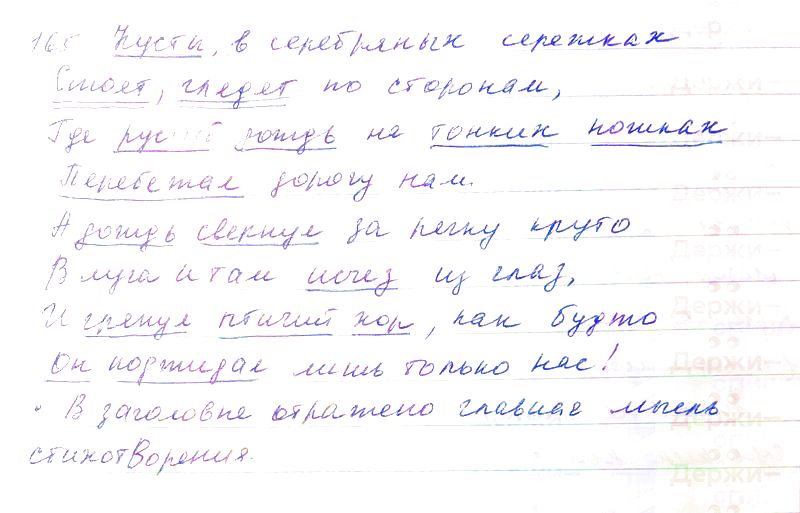 165 Кусты, в серебряных сережках
Стоят, глядят по сторонам,
Где русый дождь на тонких ножках
Перебежал дорогу нам.
А дождь свернул за речку круто
В луга и там исчез из глаз,
И грянул птичий хор, как будто
Он поджидал лишь только нас!
• В заголовке отражено главная мысль
стихотворения.
Держи-
Держи-
Держи-
Держи-
Держи-